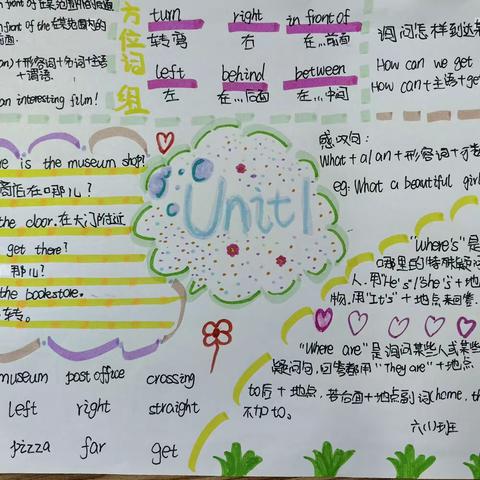 front of the 在某范围内的
前面.
)+形容词+名词+主语
+谓语.
an interesting film!
方位词组
turn right in front of
转弯 右 在...前面
left behind between
左 在...后面 在...中间
询问怎样到达某
How can we get
How can+主语+get
is the museum shop?
商店在哪儿?
the door.在大门附近
get there?
那儿?
the bookstore.
转。
Unit1
感叹句:
What+a/an+形容词+
eg: What a beautiful girl
"Where's"是
哪里的特殊疑问
人.用"He's"/"She's"+地
物.用"It's"+地点来回答.
"Where are"是询问某些人或某些
疑问句,回答都用"They are"+地点.
to后+地点,若后面+地点副词(home, th
不加to。
六(1)班
museum post office crossing
left right straight
pizza far get